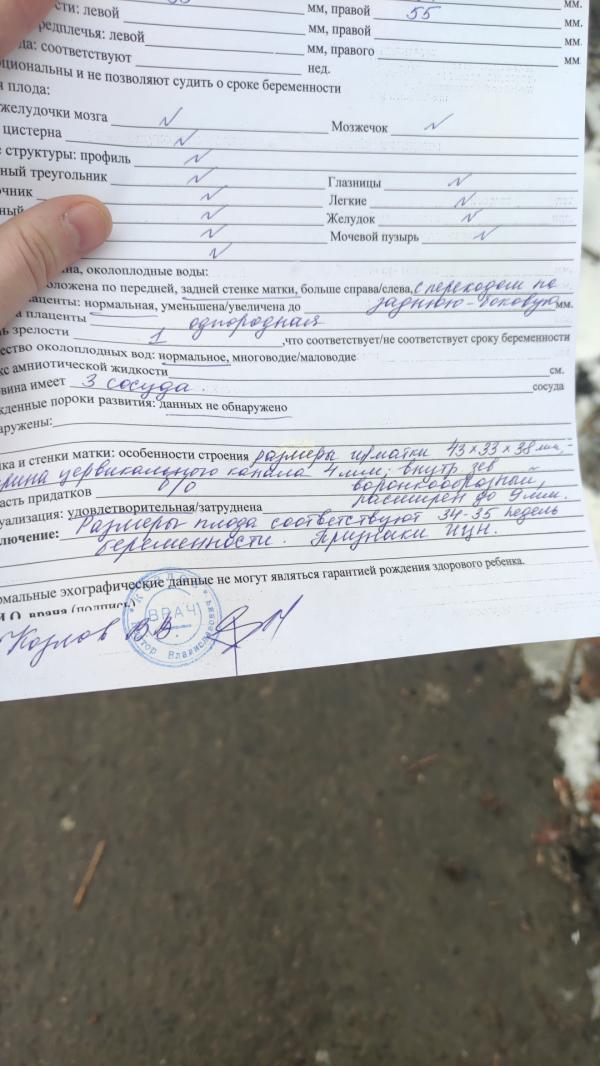 сти: левой мм, правой 55 мм.
мм, правой мм.
редплечья: левой мм, правого мм
да: соответствуют нед.
рциональны и не позволяют судить о сроке беременности
я плода:
желудочки мозга N Мозжечок N
цистерна N
е структуры: профиль N
ный треугольник N Глазницы N
очник N Легкие N
ный N Желудок N
N Мочевой пузырь N
N
на, околоплодные воды:
оложена по передней, задней стенке матки, больше справа/слева, с переходом по
лаценты: нормальная, уменьшена/увеличена до заднюю-боковую мм.
а плаценты однородная
ь зрелости 1 ,что соответствует/не соответствует сроку беременности
ество околоплодных вод: нормальное, многоводие/маловодие
кс амниотической жидкости см.
овина имеет 3 сосуда. сосуда
жденные пороки развития: данных не обнаружено
аружены:
ка и стенки матки: особенности строения размеры ш/матки 43х33х38 мм,
рина цервикального канала 4 мм; внутр. зев
асть придатков б/о воронкообразный,
уализация: удовлетворительная/затруднена расширен до 9 мм.
лючение: Размеры плода соответствуют 34-35 недель
беременности. Признаки ИЦН.
рмальные эхографические данные не могут являться гарантией рождения здорового ребенка.
И.О. врача (подпись)
Козлов В.В.
ВРАЧ
Владиславович